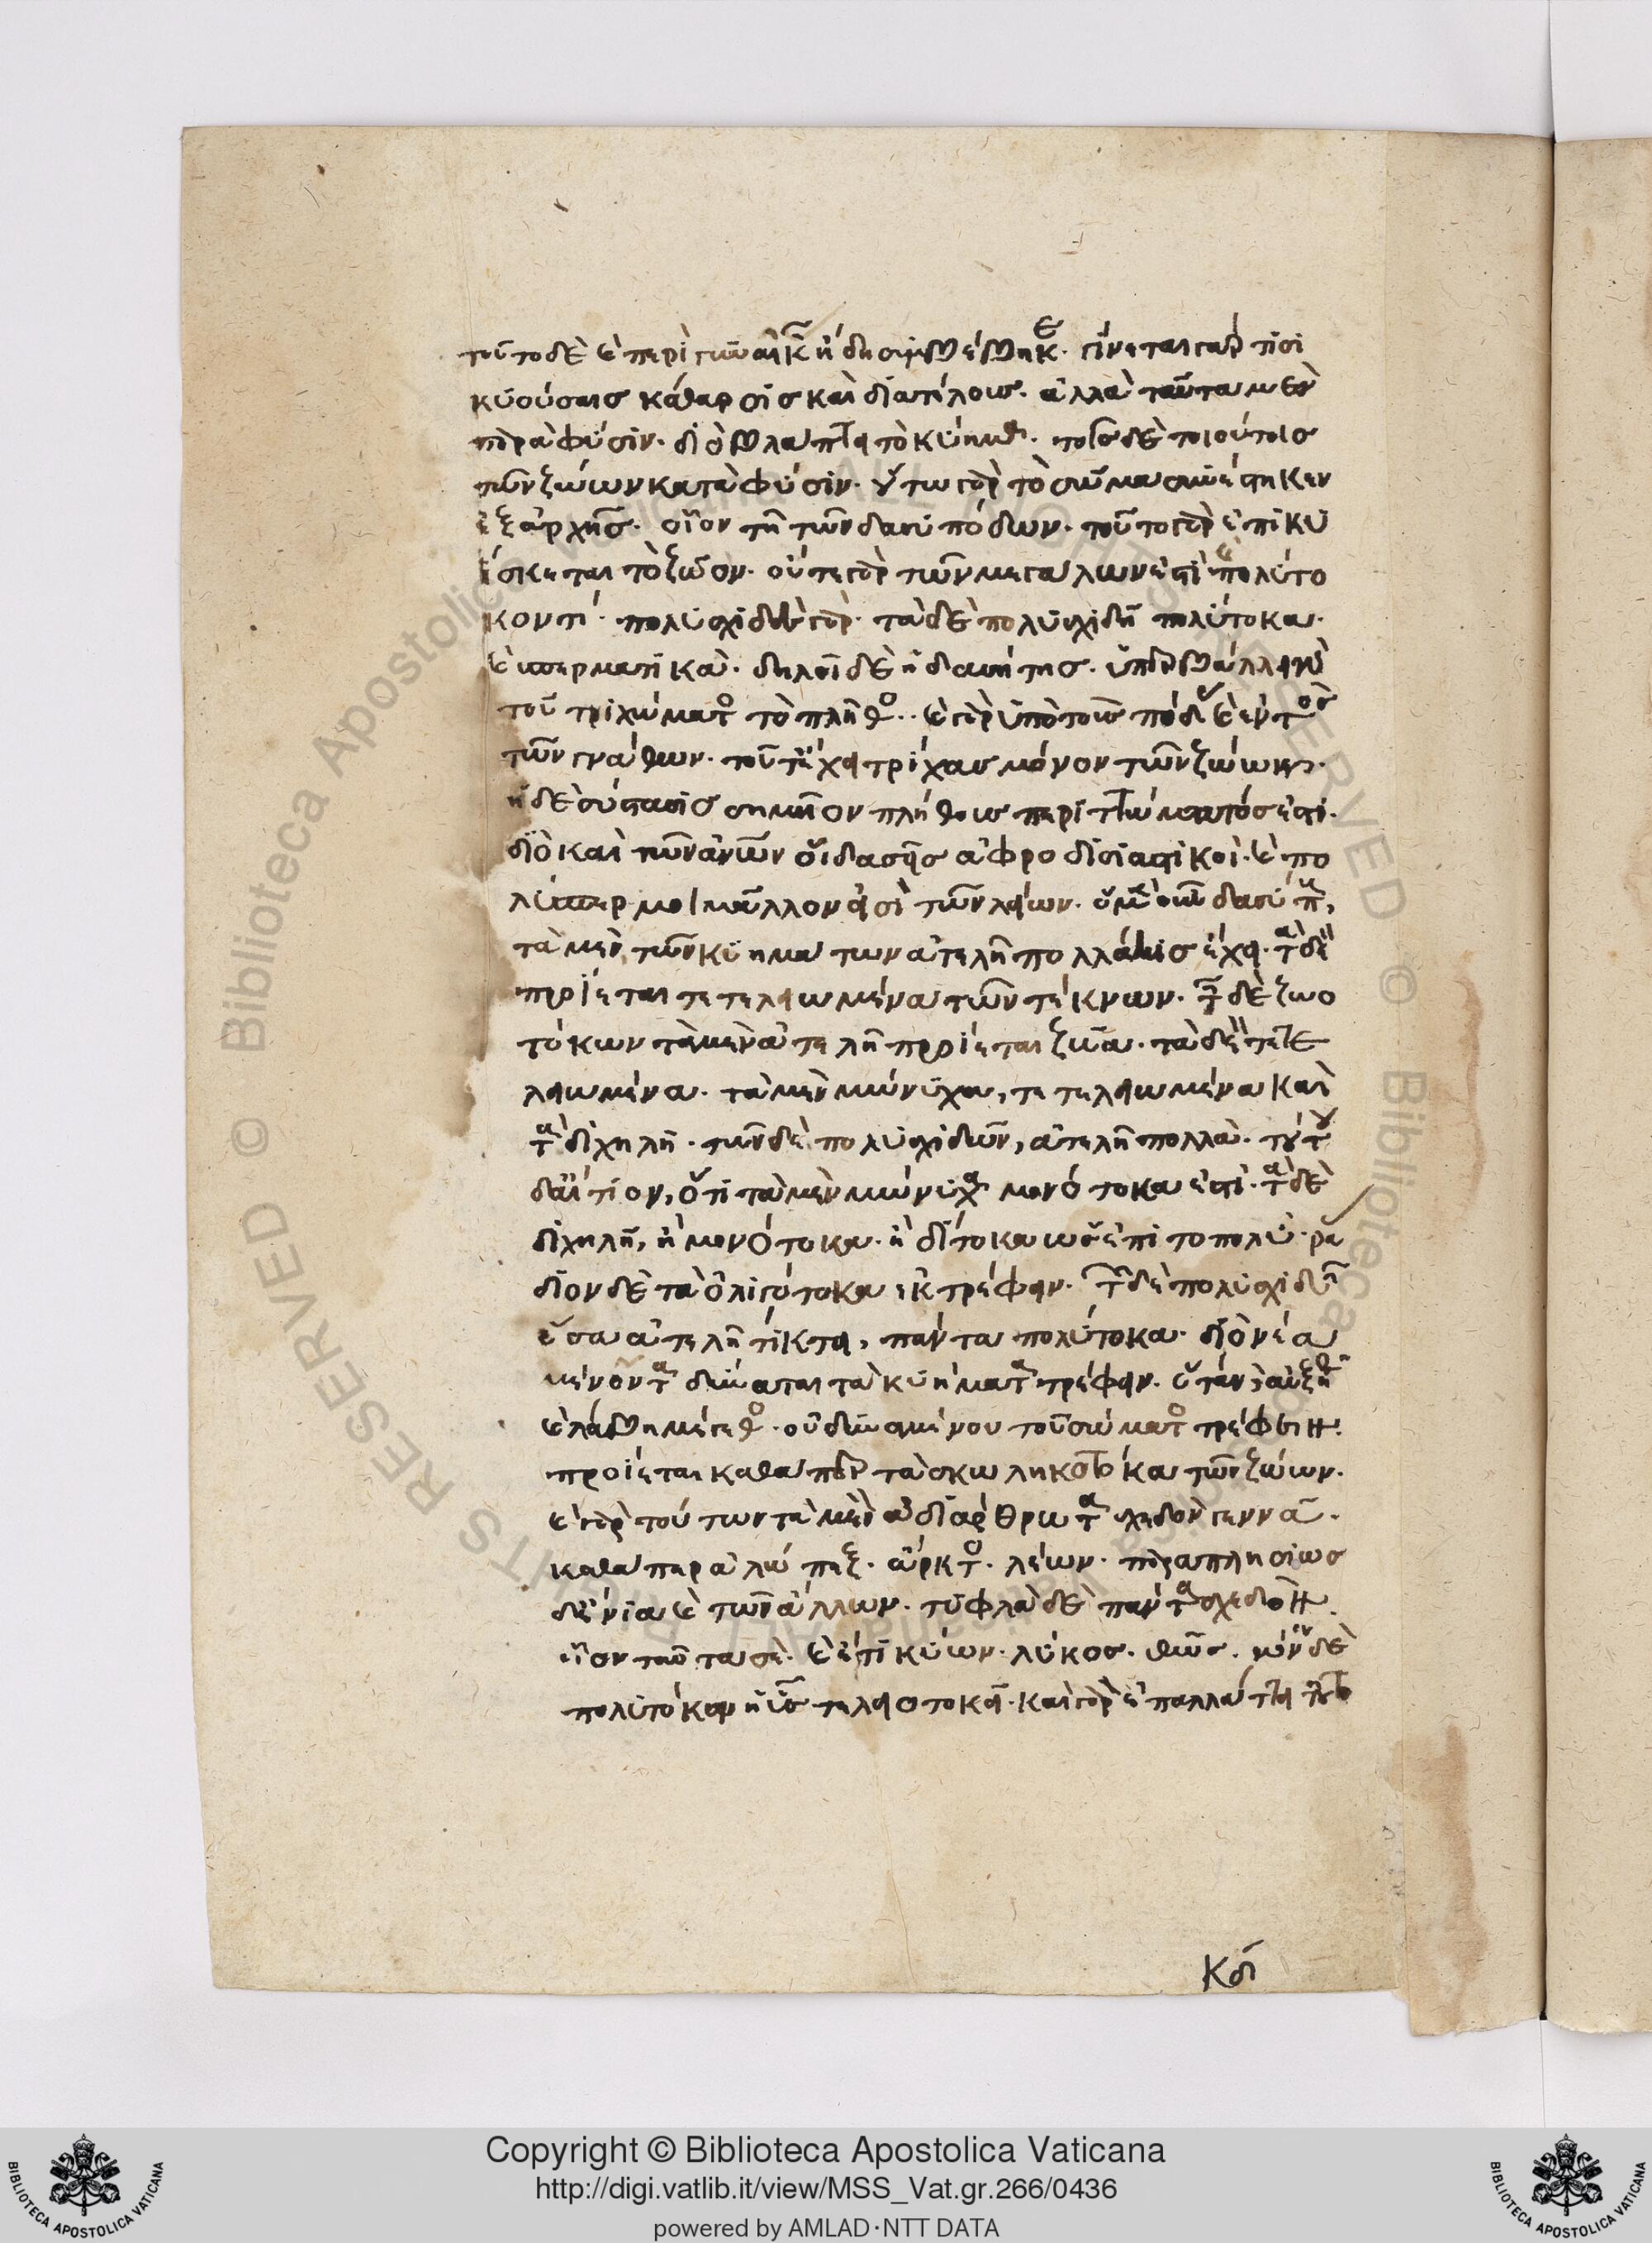 τοῦτο δὲ καὶ περὶ γυναῖκας ἤδη συμβέβηκε. γίνεται γὰρ τισὶ
κυούσαις κάθαρσις καὶ διὰ τέλους. ἀλλὰ ταῦτα μὲν
παρὰ φύσιν. διὸ βλάπτει τὸ κύημα. τοῖς δὲ τοιούτοις
τῶν ζώων κατὰ φύσιν. οὕτω γὰρ τὸ σῶμα συνέστηκεν
ἐξ ἀρχῆς. οἷον τὸ τῶν δασυπόδων. τοῦτο γὰρ ἐπικυ
ΐσκεται τὸ ζῷον. οὔτε γὰρ τῶν μεγάλων ἐστὶ πολυτό
κον τέ. πολυσχιδὲς γάρ. τὰ δὲ πολυσχιδῆ πολύτοκα.
καὶ σπερματικά. δηλοῖ δὲ ἡ δασύτης. ὑπερβάλλει γὰρ
τοῦ τριχώματος τὸ πλῆθος. καὶ γὰρ ὑπὸ τοὺς πόδας καὶ ἐντὸς
τῶν γνάθων. τοῦτ' ἔχει τρίχας μόνον τῶν ζώων.
ἡ δὲ δασύτης σημεῖον πλήθους περιττώματός ἐστι.
διὸ καὶ τῶν ἀνθρώπων οἱ δασεῖς ἀφροδισιαστικοὶ. καὶ πο
λύσπερμοι μᾶλλον εἰσὶ τῶν λείων. ὁ μὲν οὖν δασύπους,
τὰ μὲν τῶν κυημάτων ἀτελῆ πολλάκις ἔχει. τὰ δὲ
προΐεται τετελειωμένα τῶν τέκνων. τῶν δὲ ζωο
τόκων τὰ μὲν ἀτελῆ προΐεται ζῷα. τὰ δὲ τετε
λειωμένα. τὰ μὲν μώνυχα, τετελειωμένα καὶ
τὰ διχηλῆ. τῶν δὲ πολυσχιδῶν, ἀτελῆ πολλά. τούτου
δ' αἴτιον, ὅτι τὰ μὲν μώνυχα μονοτόκα ἐστὶ. τὰ δὲ
διχηλῆ, ἢ μονοτόκα. ἢ διτόκα ὡς ἐπὶ τὸ πολύ. ῥᾴ
διον δὲ τὰ ὀλιγοτόκα ἐκτρέφειν. τῶν δὲ πολυσχιδῶν
ὅσα ἀτελῆ τίκτει, πάντα πολυτόκα. διὸ νέα
μὲν ὄντα δύναται τὰ κυήματα τρέφειν. ὅταν δ' αὐξηθῇ
καὶ λάβῃ μέγεθος. οὐ δυναμένου τοῦ σώματος τρέφειν.
προΐεται καθάπερ τὰ σκωληκοτόκα τῶν ζώων.
καὶ γὰρ τούτων τὰ μὲν ἀδιάρθρωτα σχεδὸν γεννᾷ.
καθάπερ ἀλώπηξ. ἄρκτος. λέων. παραπλησίως
δ' ἔνια καὶ τῶν ἄλλων. τυφλὰ δὲ πάντα σχεδόν.
οἷον ταῦτά τε. καὶ ἔτι κύων. λύκος. θώς. μόνον δὲ
πολυτόκον ἡ ὗς τελειοτοκεῖ. καὶ γὰρ ἐπαλλάττει τοῦτο
κδ
Biblioteca Apostolica Vaticana © ALL RIGHTS RESERVED © Biblioteca Apostolica Vaticana ALL RIGHTS RESERVED ©
Copyright © Biblioteca Apostolica Vaticana
http://digi.vatlib.it/view/MSS_Vat.gr.266/0436
powered by AMLAD·NTT DATA
BIBLIOTECA APOSTOLICA VATICANA
BIBLIOTECA APOSTOLICA VATICANA